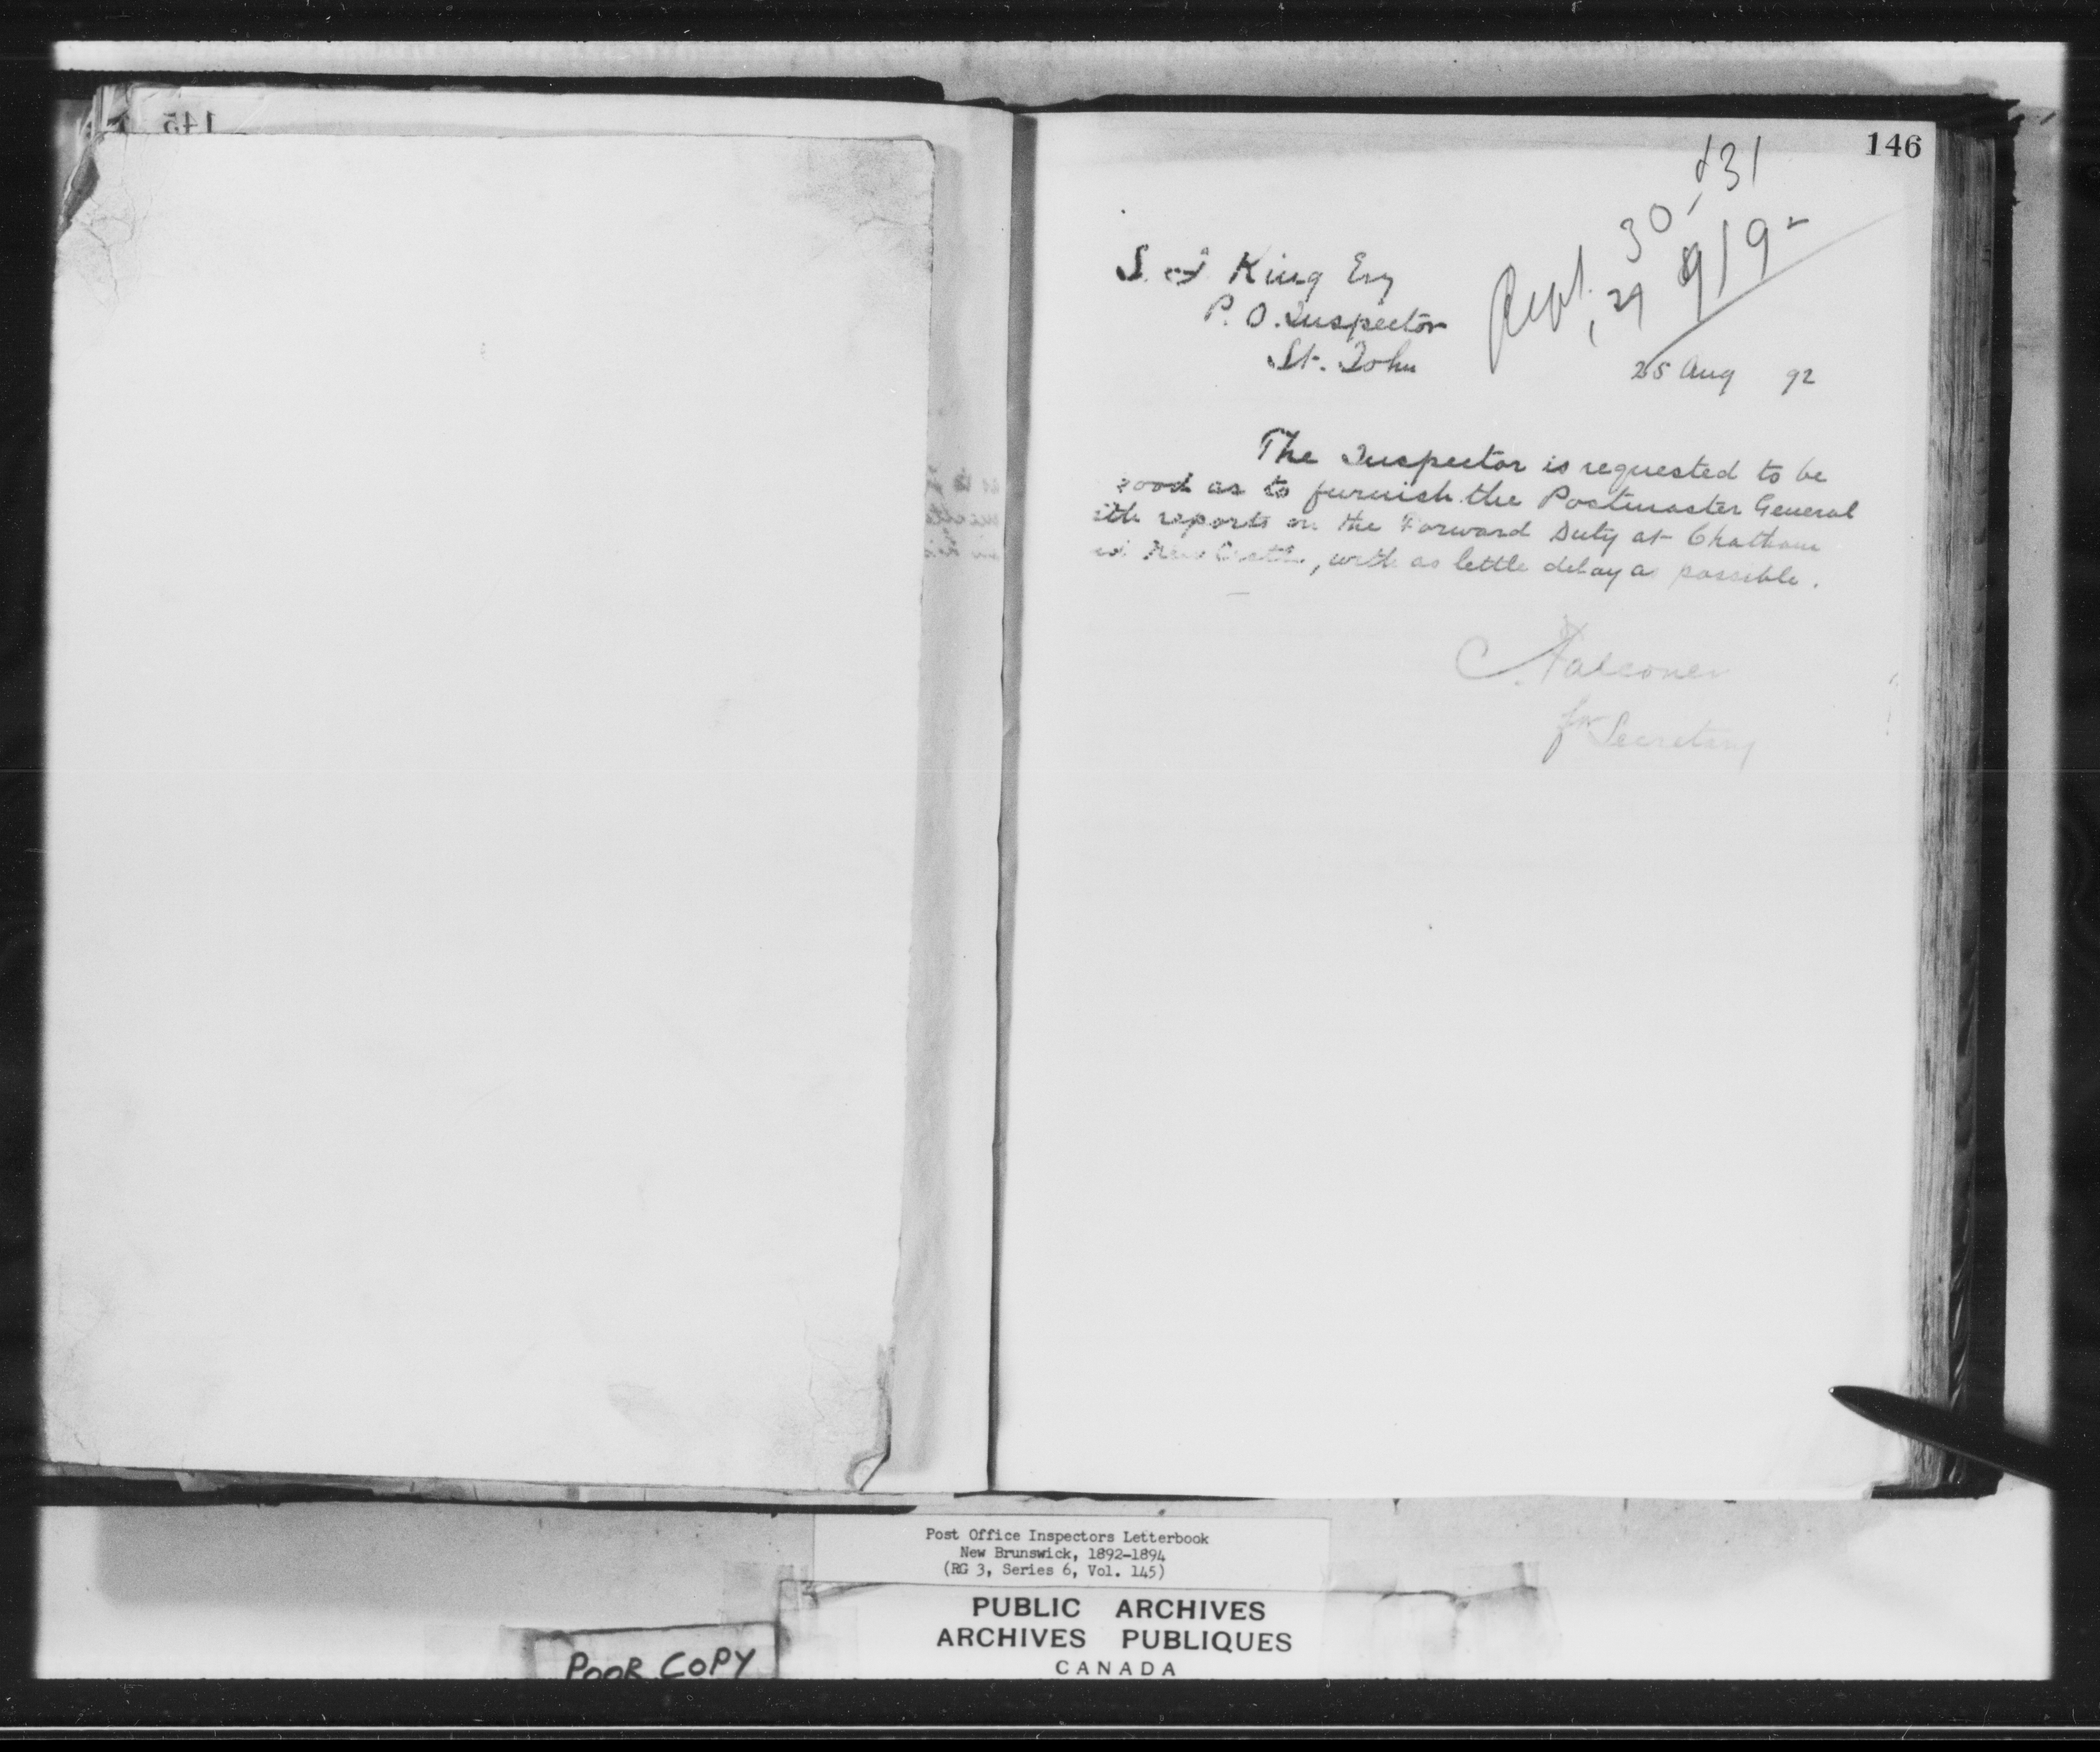 145
146
& 31
30
Rept. 29 9/9
S. J. King Esq
P. O. Inspector
St. John
25 Aug 92
The Inspector is requested to be
good as to furnish the Postmaster General
ith reports on the Forward Duty at Chatham
New Castle, with as little delay as possible.
Falconer
for Secretary
Post Office Inspectors Letterbook
New Brunswick, 1892-1894
(RG 3, Series 6, Vol. 145)
PUBLIC ARCHIVES
ARCHIVES PUBLIQUES
CANADA
POOR COPY